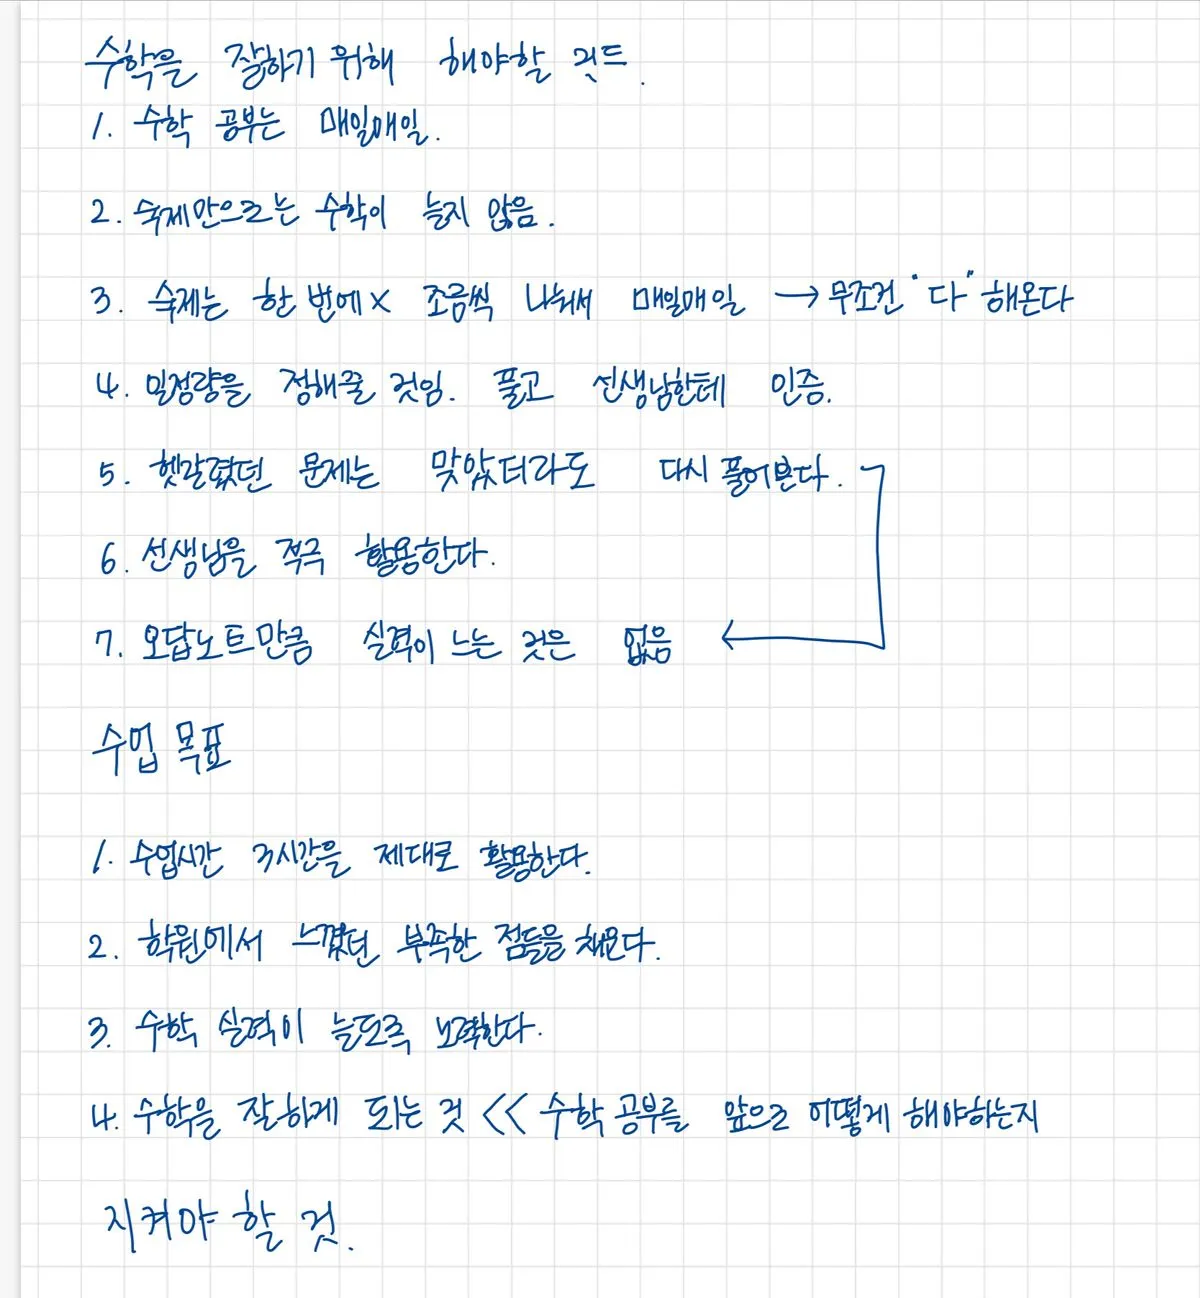 수학을 잘하기 위해 해야할 것들.
1. 수학 공부는 매일매일.
2. 숙제만으로는 수학이 늘지 않음.
3. 숙제는 한 번에 x 조금씩 나눠서 매일매일 → 무조건 "다" 해온다
4. 일정량을 정해줄 것임. 풀고 선생님한테 인증.
5. 헷갈렸던 문제는 맞았더라도 다시 풀어본다.
6. 선생님을 적극 활용한다.
7. 오답노트만큼 실력이 느는 것은 없음 ←
수업 목표
1. 수업시간 3시간을 제대로 활용한다.
2. 학원에서 느꼈던 부족한 점들을 채운다.
3. 수학 실력이 늘도록 노력한다.
4. 수학을 잘하게 되는 것 << 수학 공부를 앞으로 어떻게 해야하는지
지켜야 할 것.